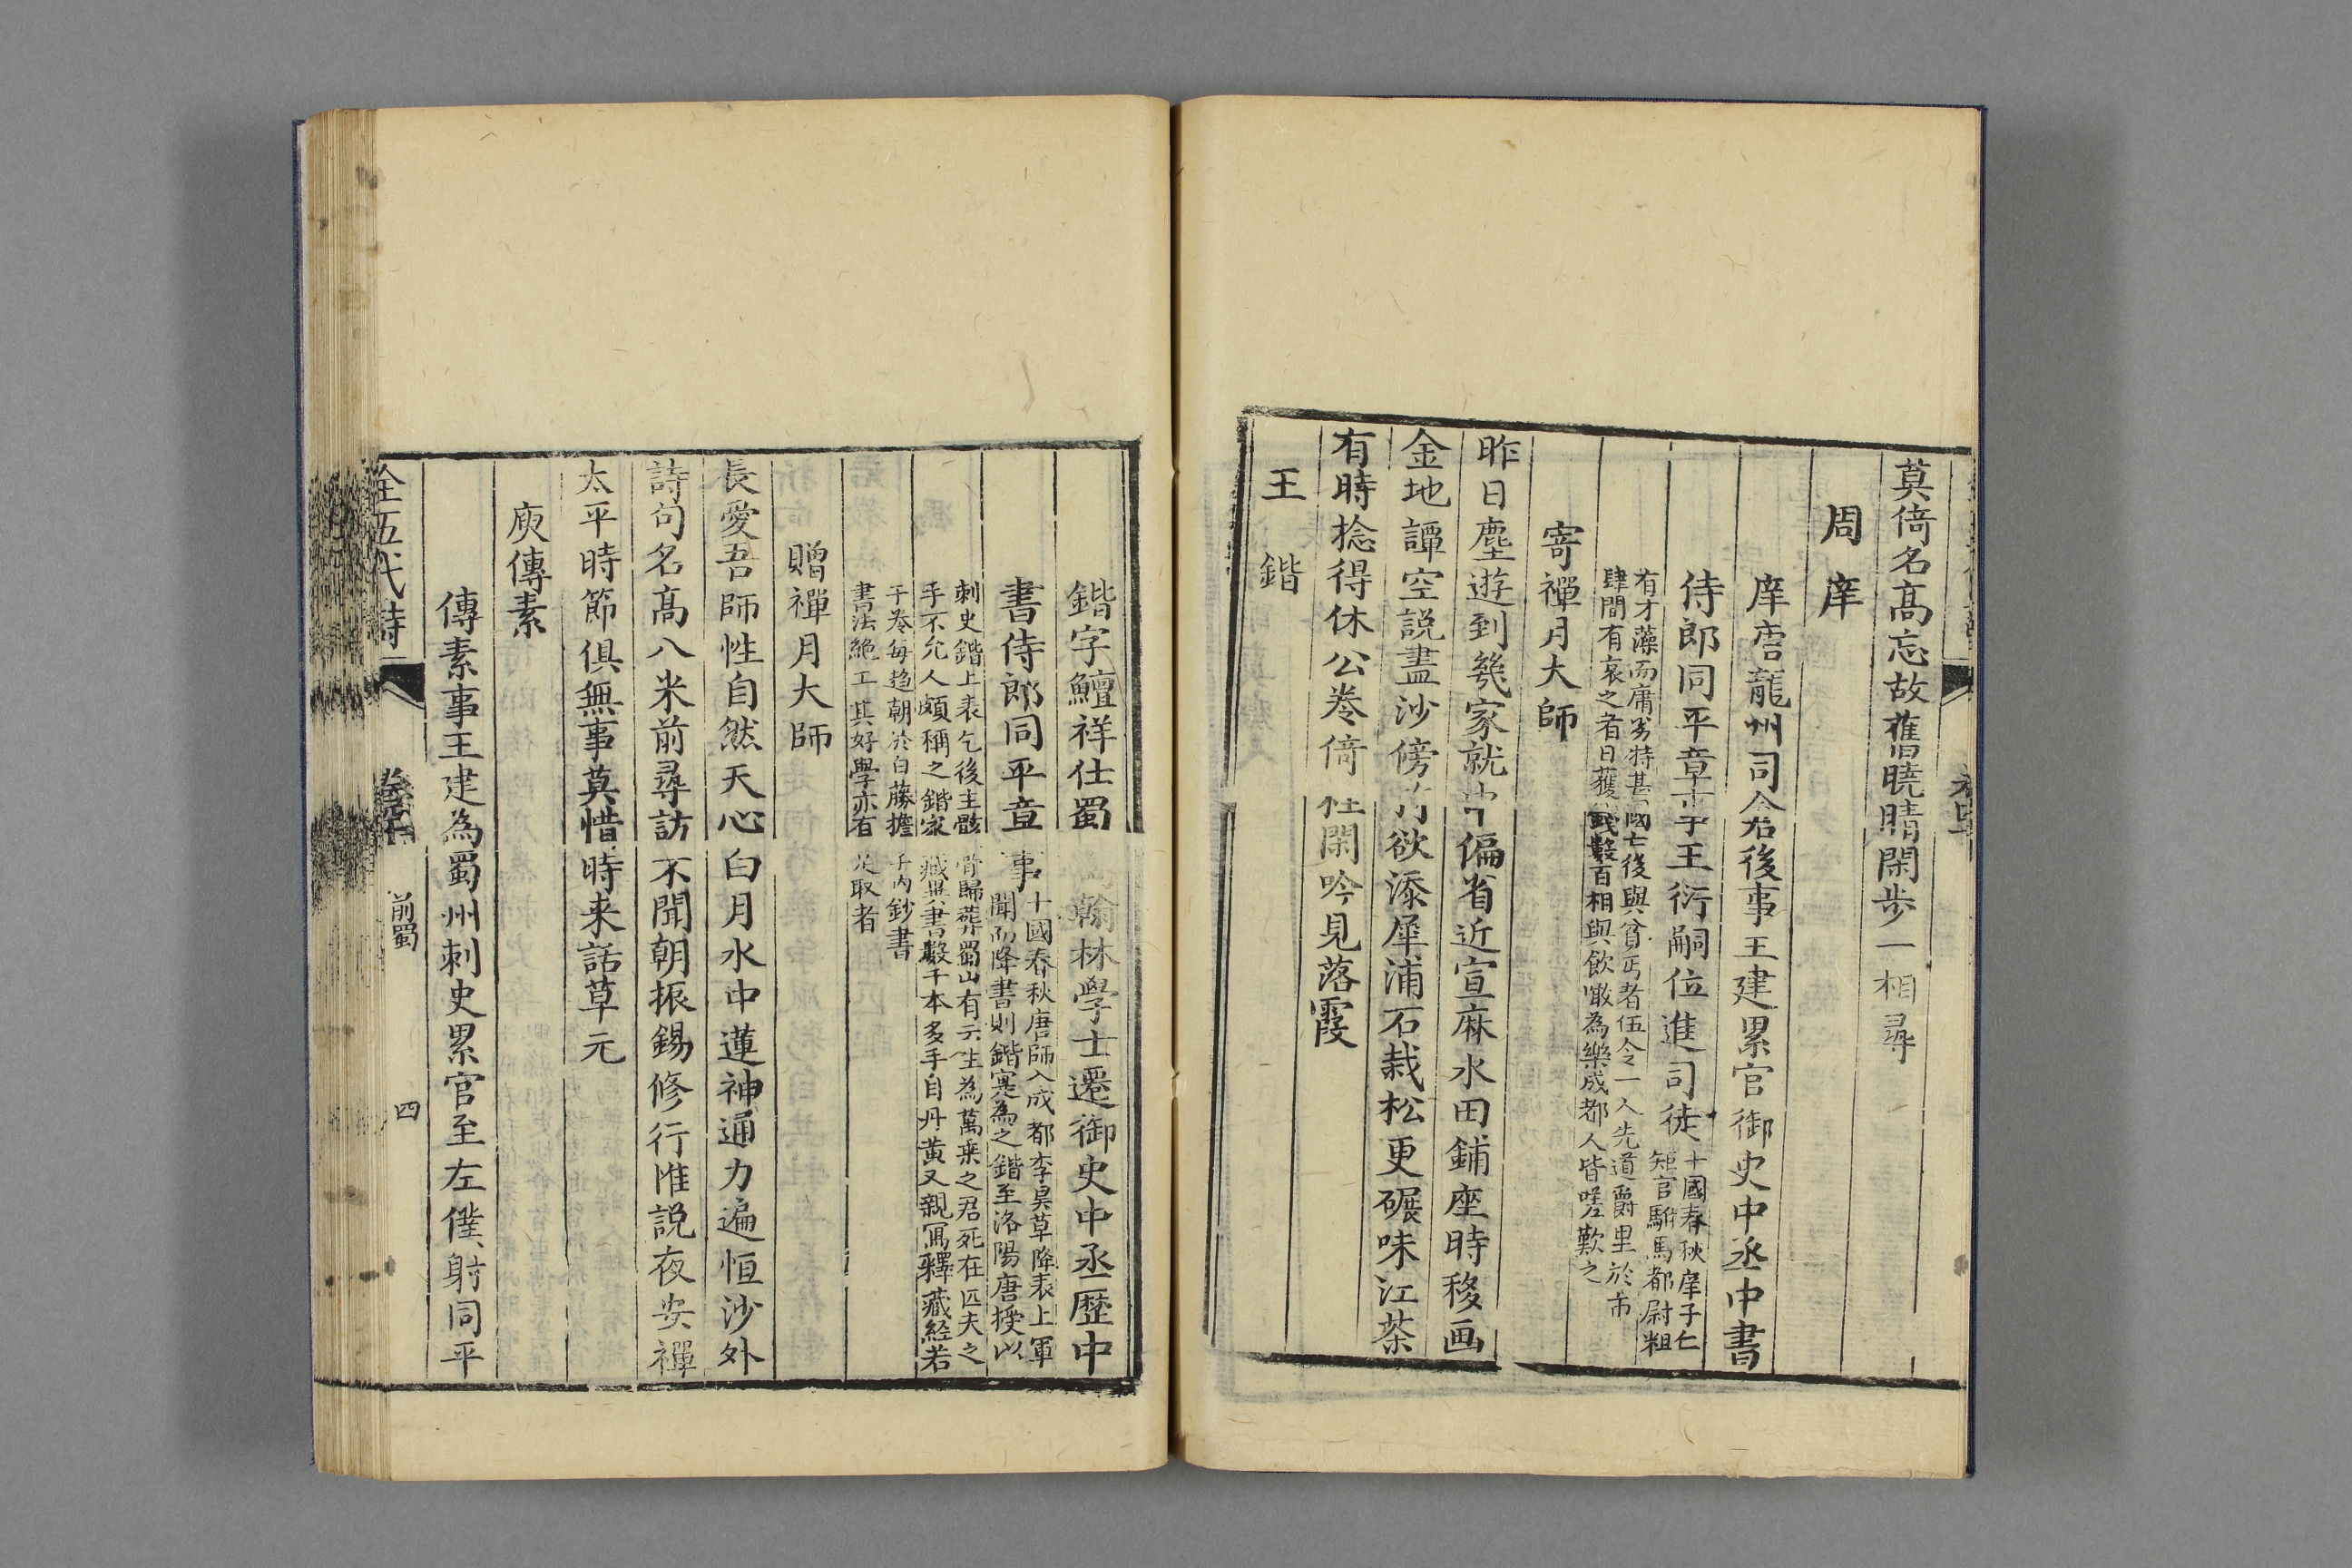 莫倚名高忘故舊曉晴閑步一相尋
周庠
庠唐龍州司倉後事王建累官御史中丞中書
侍郎同平章事王衍嗣位進司徒
十國春秋庠子仁
矩官駙馬都尉粗
有才藻而庸劣特甚國亡後與貧丐者伍令一人先道爵里於市
肆間有哀之者日獲錢數百相與飲噉為樂成都人皆嗟歎之
寄禪月大師
昨日塵遊到幾家就中偏省近宣麻水田鋪座時移画
金地譚空說盡沙傍竹欲添犀浦石栽松更碾味江茶
有時捻得休公卷倚柱閑吟見落霞
王鍇
鍇字鱣祥仕蜀為翰林學士遷御史中丞歷中
書侍郎同平章事
十國春秋唐師入成都李昊草降表上軍
聞而降書則鍇寔為之鍇至洛陽唐授以
刺史鍇上表乞後主骸骨歸葬蜀山有云生為萬乘之君死在匹夫之
手不允人頗稱之鍇家藏異書數千本多手自丹黃又親寫釋藏經若
干卷每趋朝於白藤擔子內鈔書
書法絶工其好學亦有足取者
贈禪月大師
長愛吾師性自然天心白月水中蓮神通力遍恒沙外
詩句名高八米前尋訪不聞朝振錫修行惟說夜安禪
太平時節俱無事莫惜時来話草元
庾傳素
傳素事王建為蜀州刺史累官至左僕射同平
全五代詩 前蜀 四